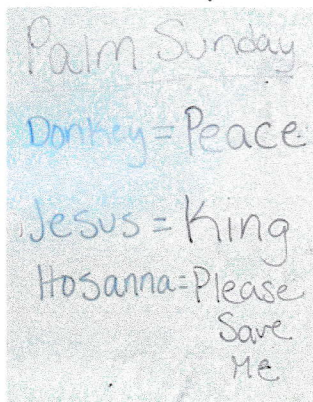 Palm Sunday
Donkey = Peace
Jesus = King
Hosanna = Please
Save
Me